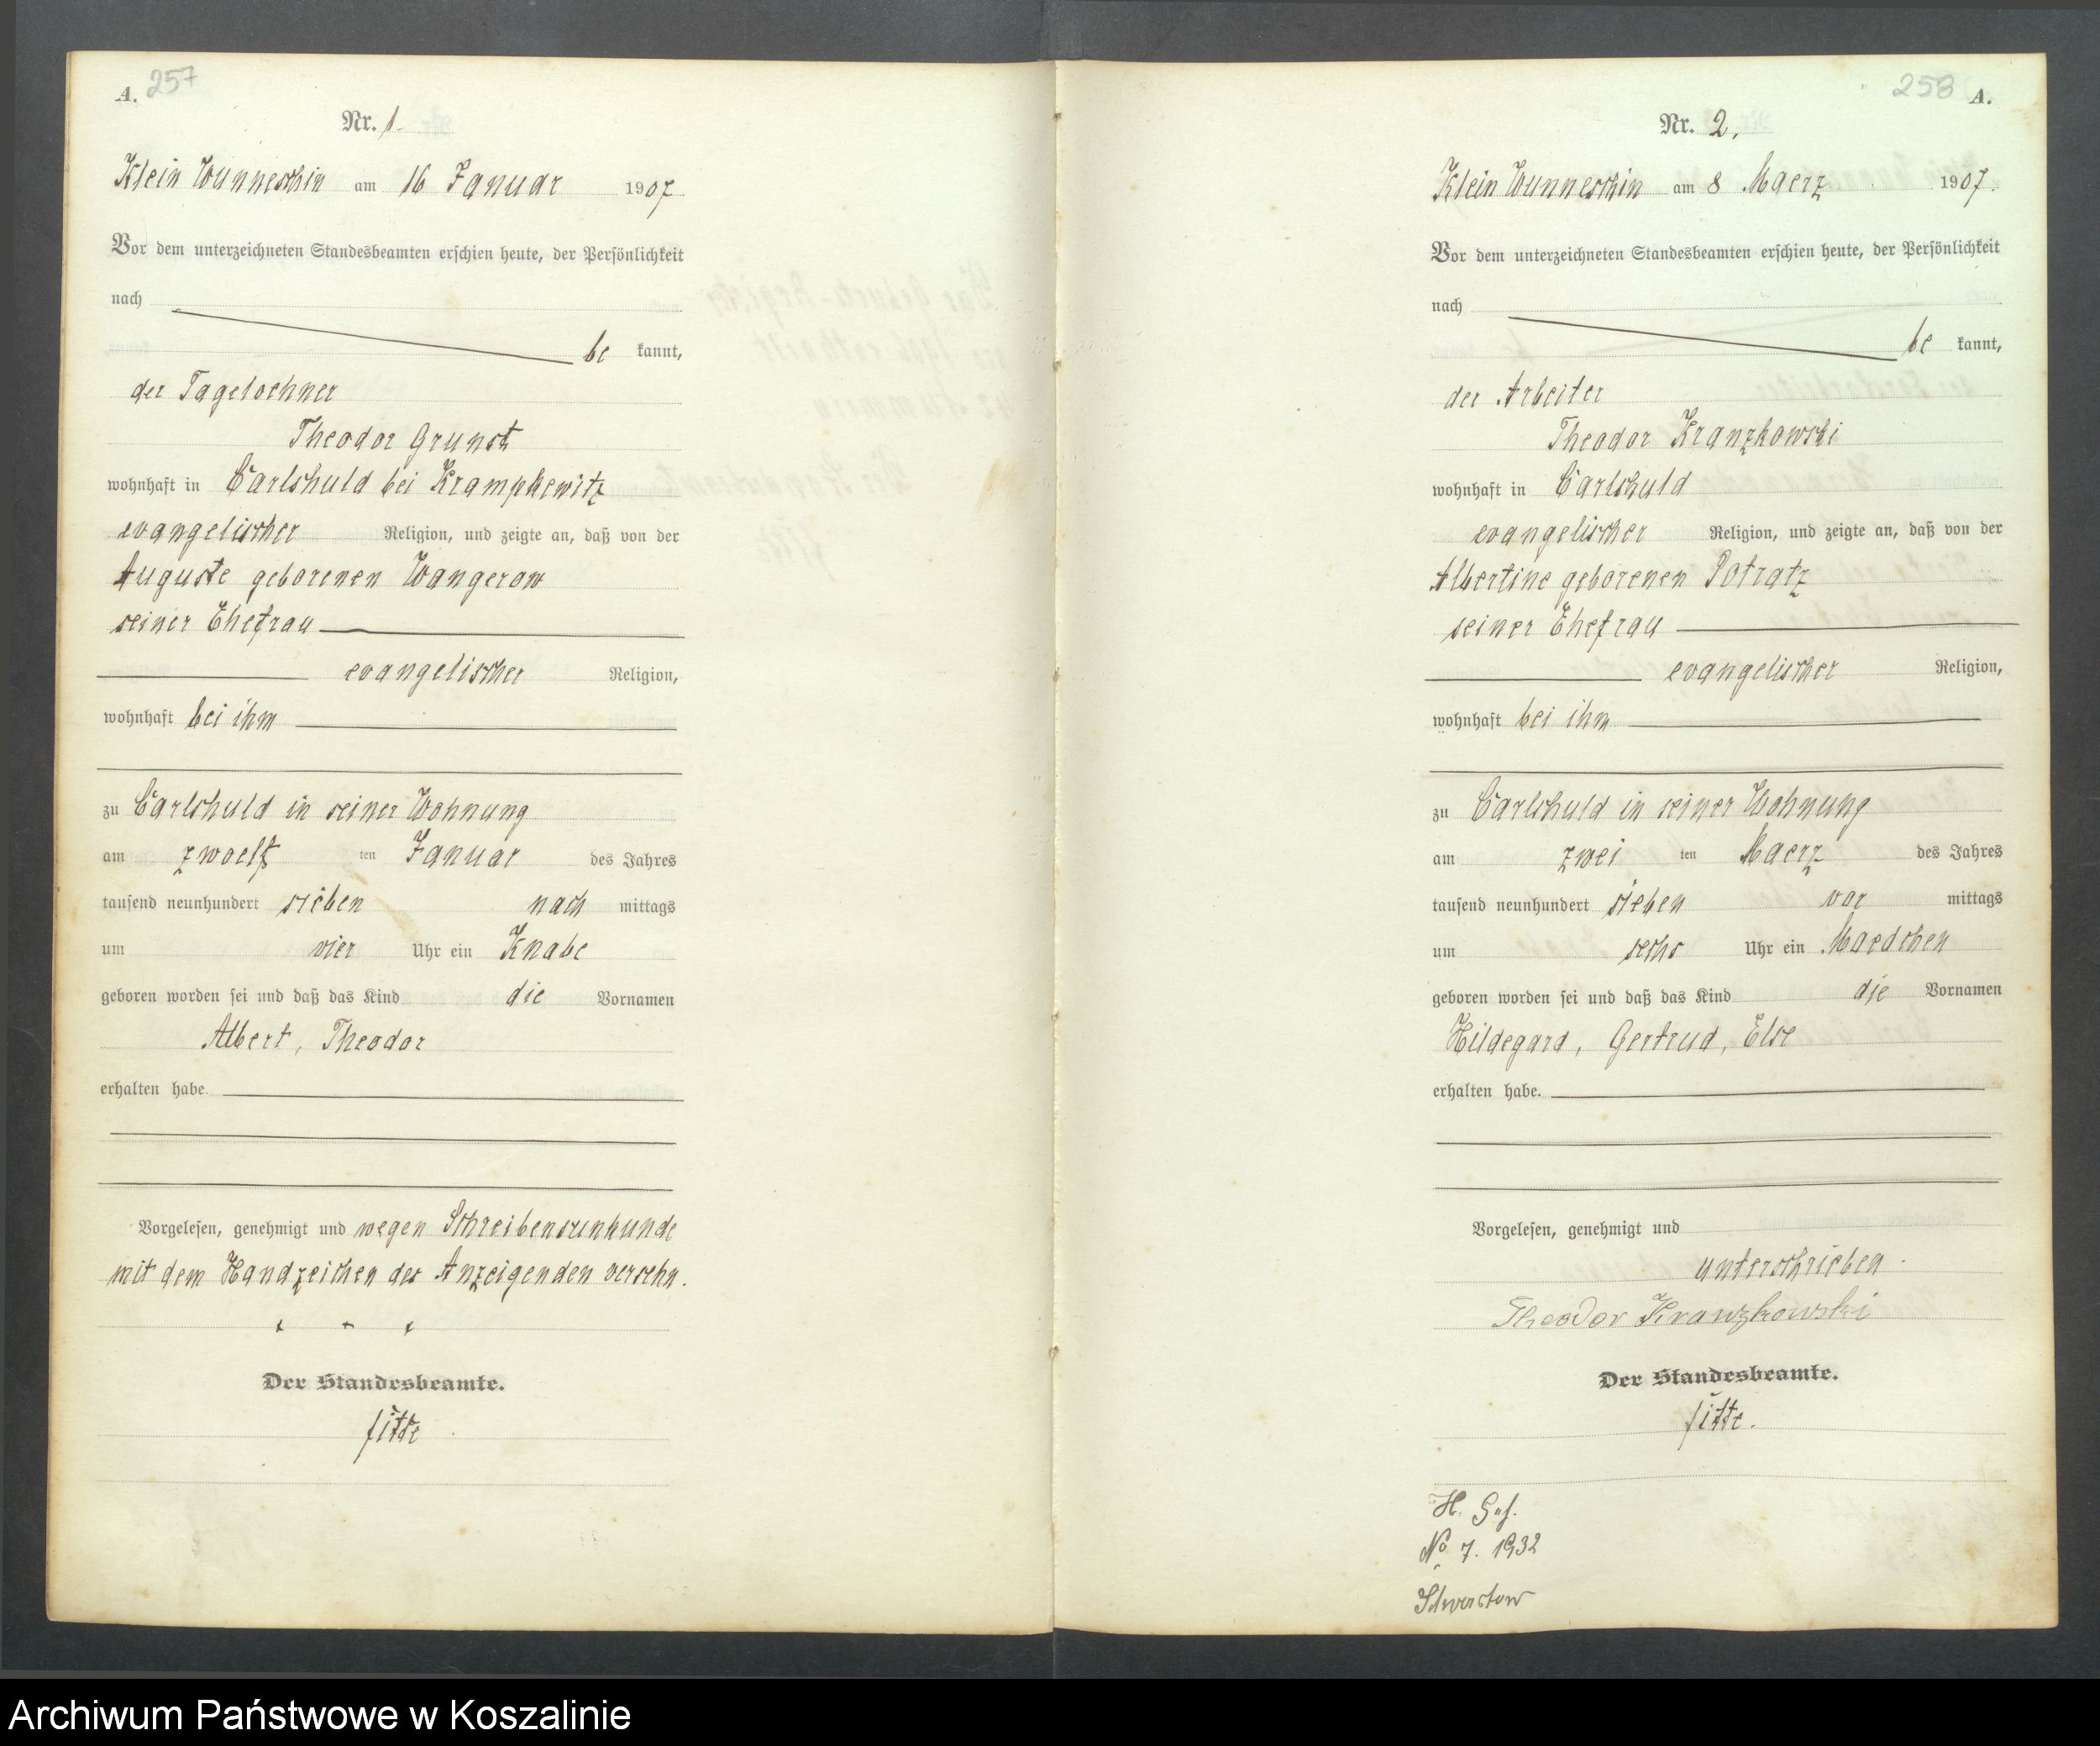 A. 257
Nr. 1.
Klein Wunneschin am 16 Januar 1907
Vor dem unterzeichneten Standesbeamten erschien heute, der Persönlichkeit
nach
be kannt,
der Tageloehner
Theodor Grunst
wohnhaft in Carlshuld bei Krampkewitz
evangelischer Religion, und zeigte an, daß von der
Auguste geborenen Wangerow
seiner Ehefrau
evangelischer Religion,
wohnhaft bei ihm
zu Carlshuld in seiner Wohnung
am zwoelf ten Januar des Jahres
tausend neunhundert sieben nach mittags
um vier Uhr ein Knabe
geboren worden sei und daß das Kind die Vornamen
Albert, Theodor
erhalten habe.
Vorgelesen, genehmigt und wegen Schreibensunkunde
mit dem Handzeichen des Anzeigenden versehn.
+ + +
Der Standesbeamte.
258 A.
Nr. 2.
Klein Wunneschin am 8 Maerz 1907.
Vor dem unterzeichneten Standesbeamten erschien heute, der Persönlichkeit
nach
be kannt,
der Arbeiter
Theodor Kranzkowski
wohnhaft in Carlshuld
evangelischer Religion, und zeigte an, daß von der
Albertine geborenen Potratz
seiner Ehefrau
evangelischer Religion,
wohnhaft bei ihm
zu Carlshuld in seiner Wohnung
am zwei ten Maerz des Jahres
tausend neunhundert sieben vor mittags
um sechs Uhr ein Maedchen
geboren worden sei und daß das Kind die Vornamen
Hildegard, Gertrud, Else
erhalten habe.
Vorgelesen, genehmigt und
unterschrieben.
Theodor Kranzkowski
Der Standesbeamte.
H.
No 7. 1932
Archiwum Państwowe w Koszalinie